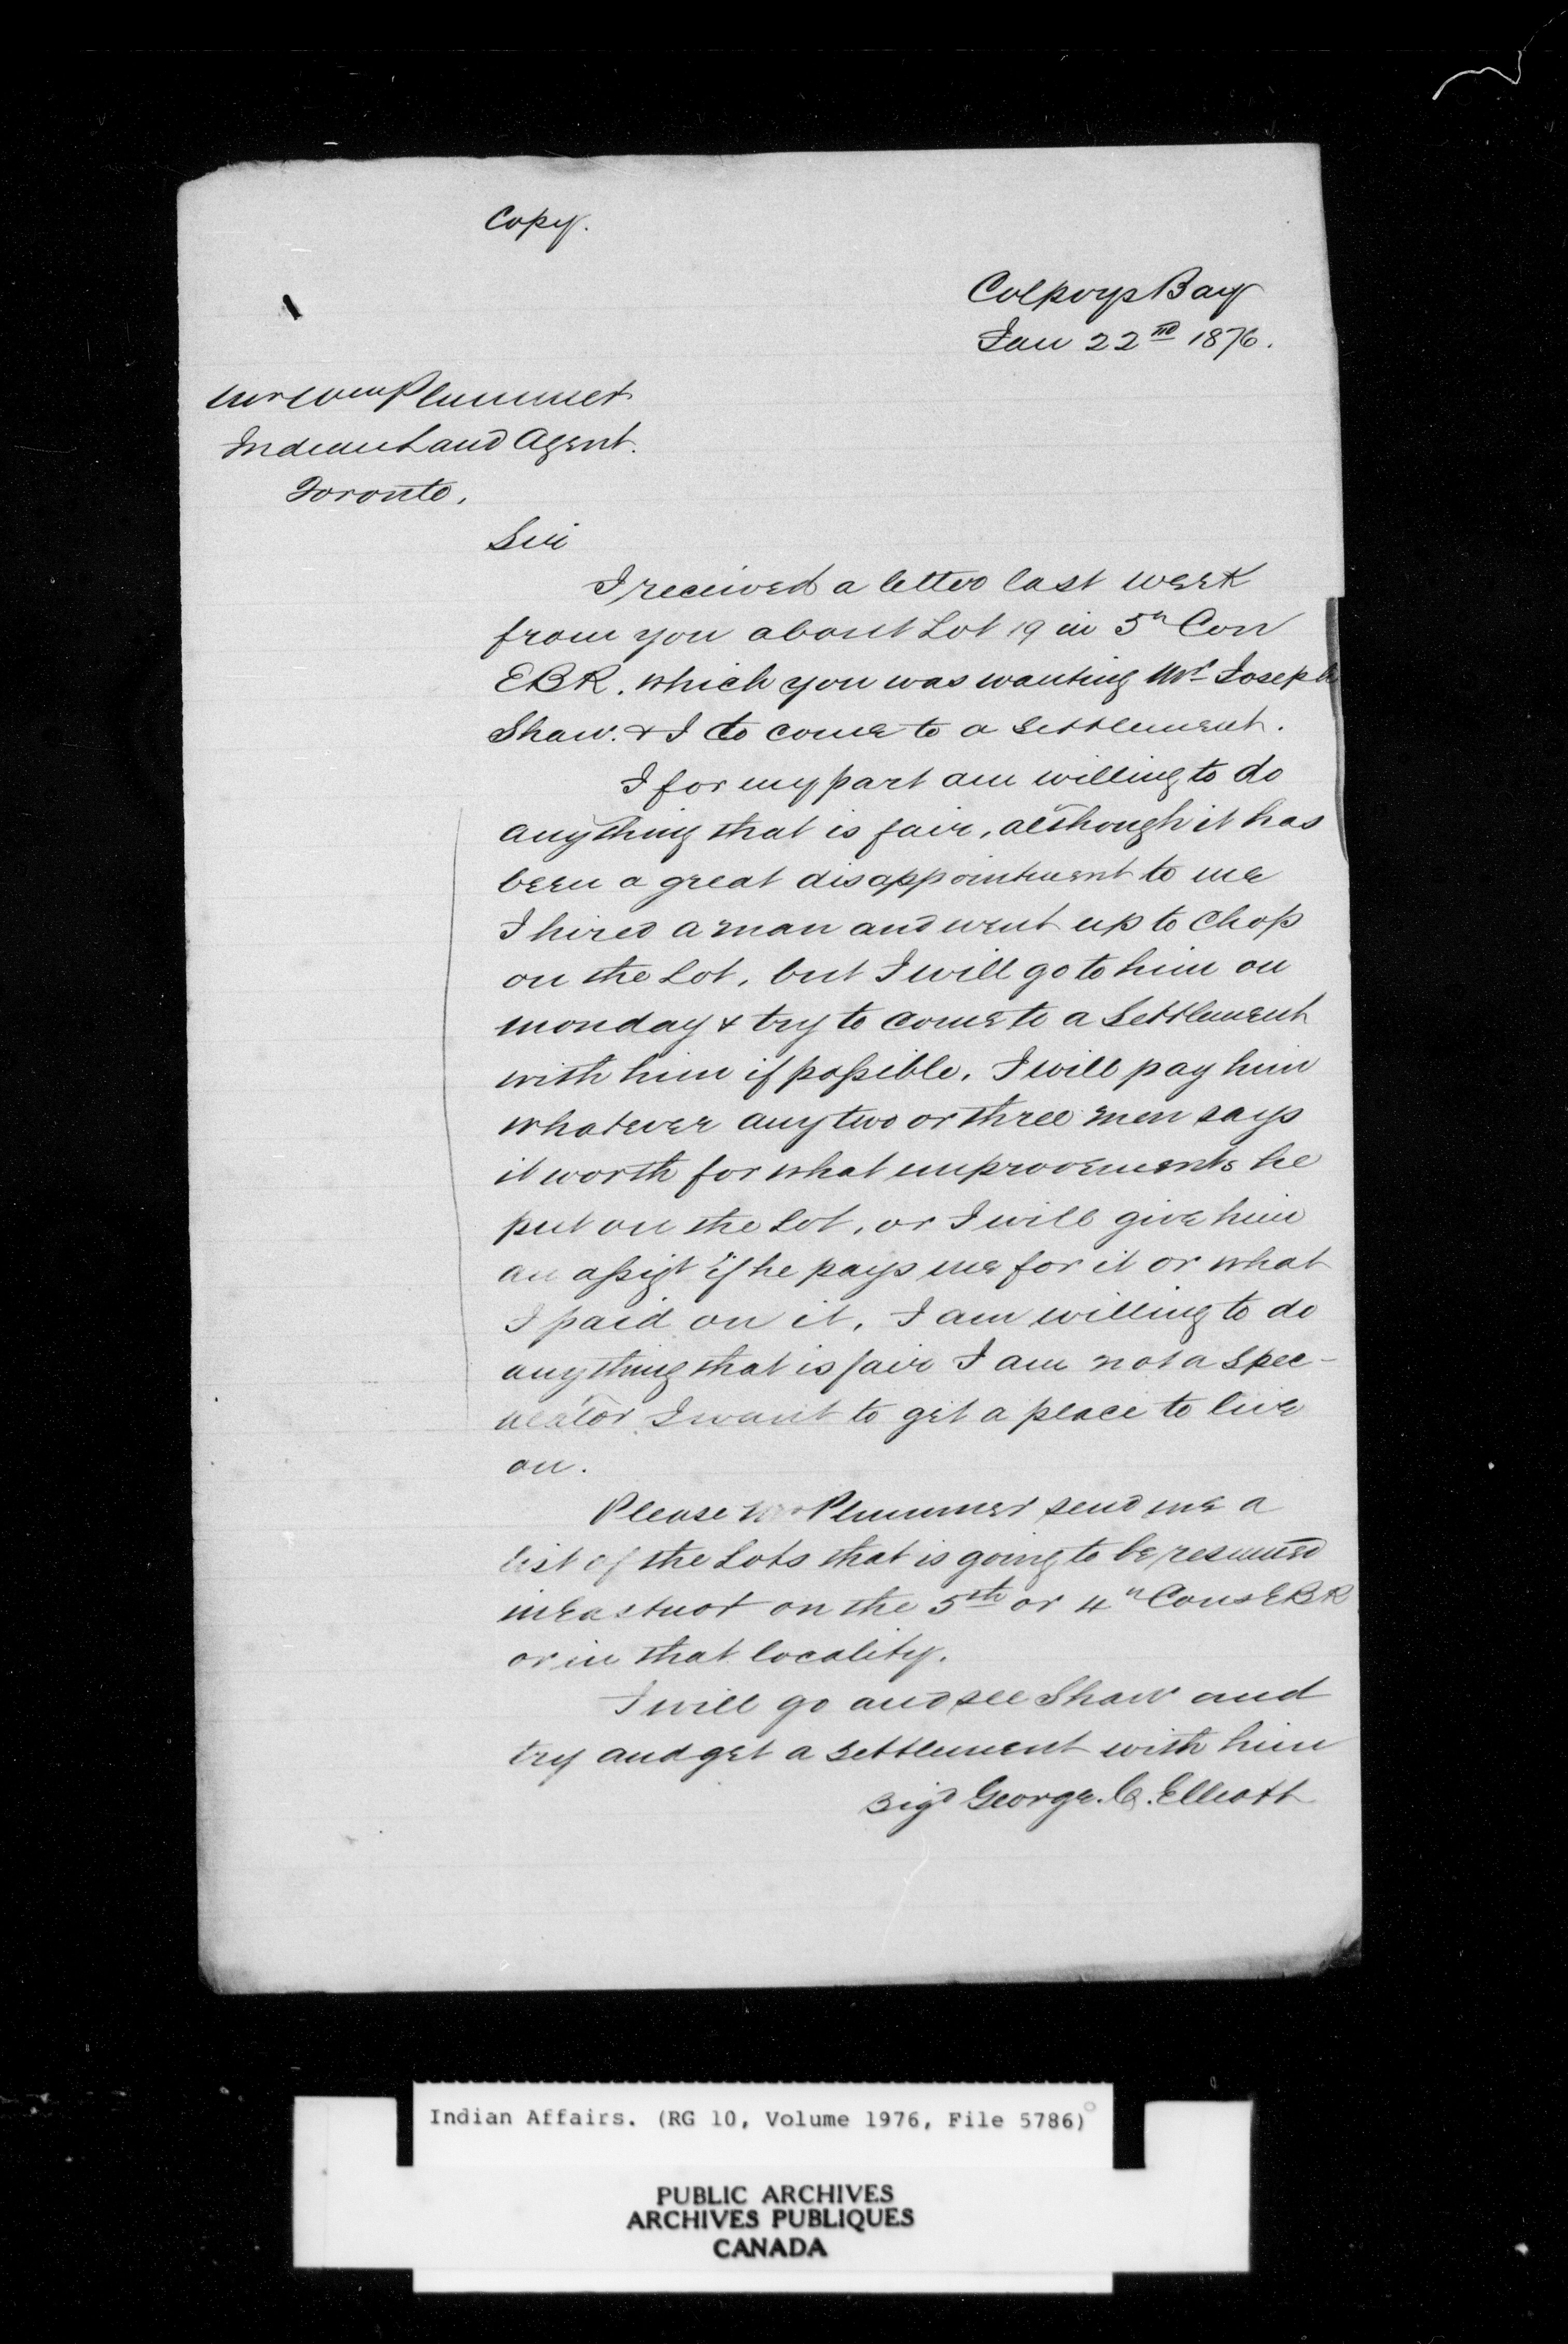 Copy.
Colpoys Bay
Jan 22nd 1876.
Mr Wm Plummer
Indian Land Agent.
Toronto.
Sir
I received a letter last week
from you about Lot 19 in 5th Con
EBR. which you was wanting Mr Joseph
Shaw. & I to come to a Settlement.
I for my part am willing to do
anything that is fair, although it has
been a great disappointment to me
I hired a man and went up to Chop
on the Lot, but I will go to him on
monday & try to come to a Settlement
with him if possible. I will pay him
whatever any two or three men says
it worth for what improvements he
put on the Lot, or I will give him
an assigt if he pays me for it or what
I paid on it, I am willing to do
anything that is fair I am not a Spec-
ulator I want to get a place to live
on.
Please Mr Plummer send me a
list of the Lots that is going to be resumed
in Eastnor on the 5th or 4th Cons EBR
or in that locality.
I will go and see Shaw and
try and get a Settlement with him
Sigd George. C. Elliott
Indian Affairs. (RG 10, Volume 1976, File 5786)
PUBLIC ARCHIVES
ARCHIVES PUBLIQUES
CANADA